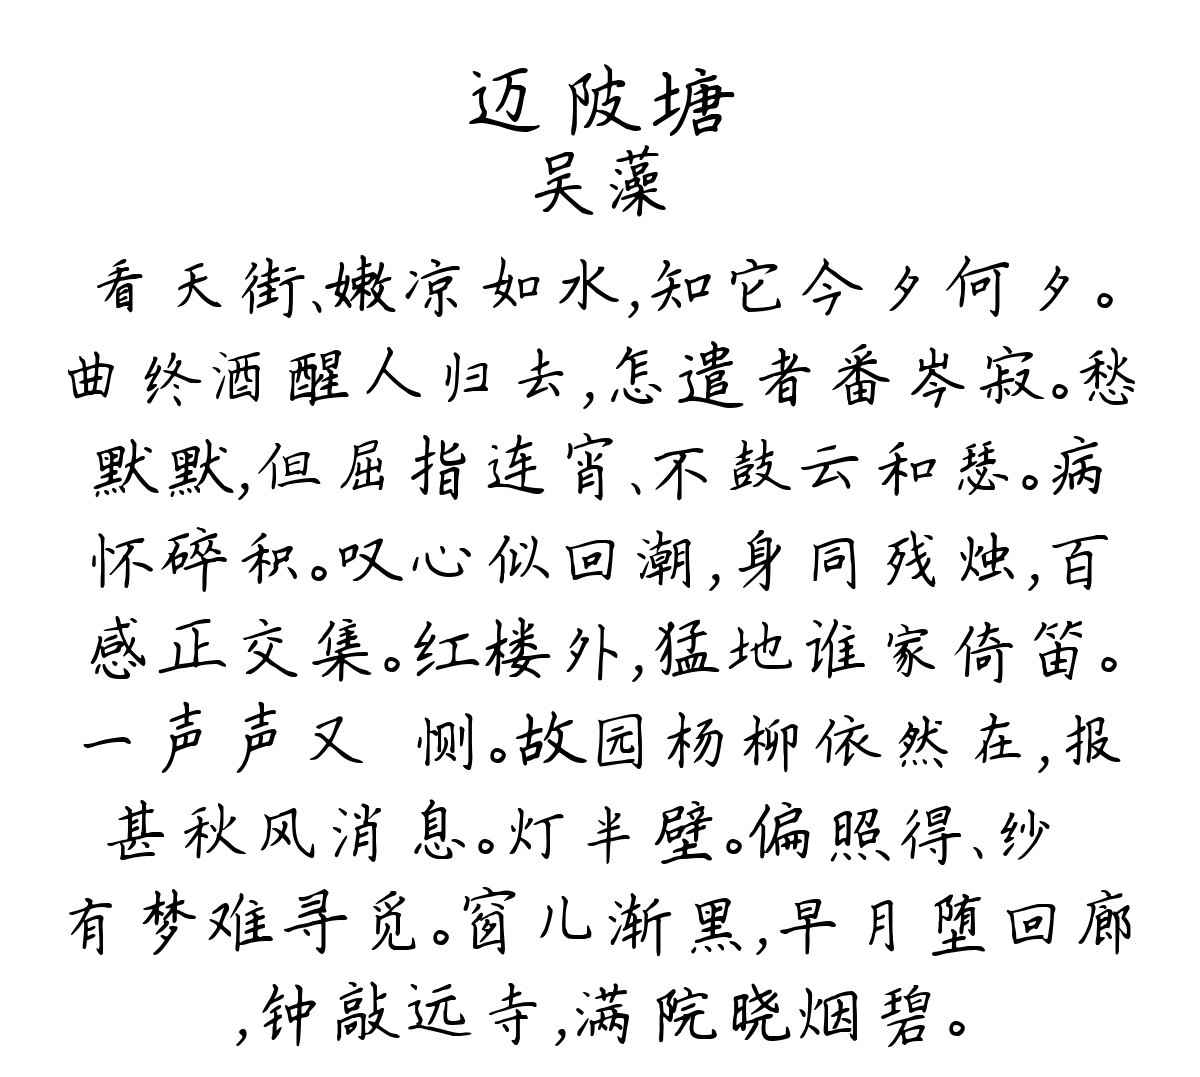 迈陂塘
吴藻
看天街、嫩凉如水,知它今夕何夕。
曲终酒醒人归去,怎遣者番岑寂。愁
默默,但屈指连宵、不鼓云和瑟。病
怀碎积。叹心似回潮,身同残烛,百
感正交集。红楼外,猛地谁家倚笛。
一声声又 恻。故园杨柳依然在,报
甚秋风消息。灯半壁。偏照得、纱
有梦难寻觅。窗儿渐黑,早月堕回廊
,钟敲远寺,满院晓烟碧。